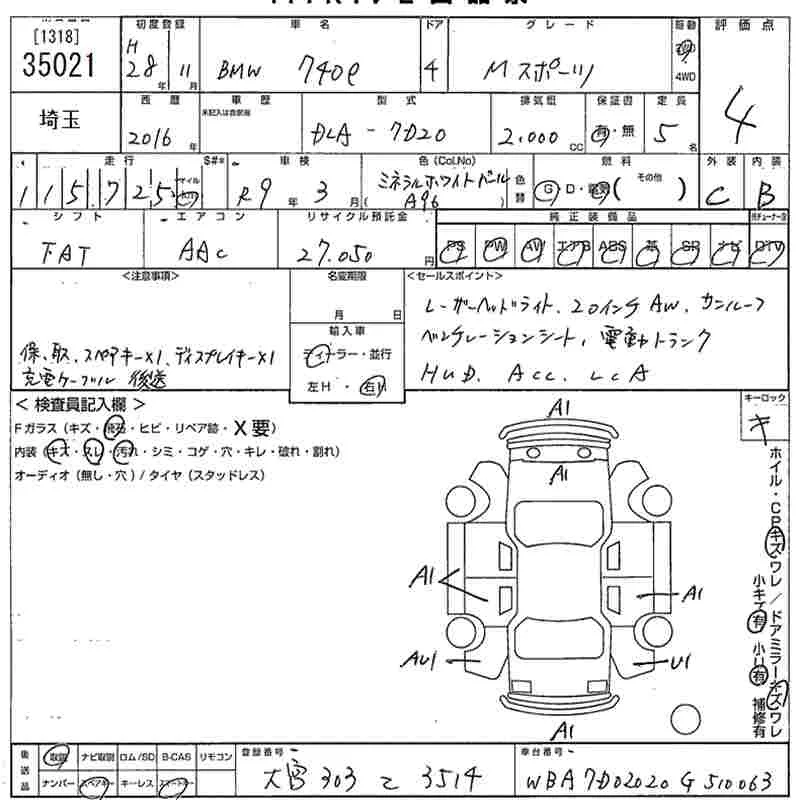 [1318]
35021
初度登録
H
28年 11月
車名
BMW 740e
ドア
4
グレード
Mスポーツ
駆動
2WD
4WD
評価点
4
埼玉
西暦
2016年
車歴
未記入は自家用
型式
DLA-7D20
排気量
2,000 CC
保証書
有・無
定員
5名
走行
115,725
マイル
km
S#*
車検
R9年 3月
色(Col.No)
ミネラルホワイトパール
A96
色替
燃料
G・D・電気( その他 )
外装
C
内装
B
シフト
FAT
エアコン
AAC
リサイクル預託金
27,050円
純正装備品
PS PW AW エアB ABS 革 SR ナビ DTV
<注意事項>
保、取、スペアキー×1、ディスプレイキー×1
充電ケーブル 後送
名変期限
月 日
輸入車
ディーラー・並行
左H・右H
<セールスポイント>
レーザーヘッドライト、20インチAW、サンルーフ
ベンチレーションシート、電動トランク
HUD、ACC、LCA
<検査員記入欄>
Fガラス(キズ・飛石・ヒビ・リペア跡・X要)
内装(キズ・スレ・汚れ・シミ・コゲ・穴・キレ・破れ・割れ)
オーディオ(無し・穴)/タイヤ(スタッドレス)
キーロック
キ
A1
A1
A1
A1
AU1
U1
A1
ホイル・CPキズワレ/ドアミラーキズワレ
小キズ有 小U有 補修有
後送品
取説
ナビ取説
ロム/SD
B-CAS
リモコン
ナンバー
スペアキー
キーレス
スマートキー
登録番号
大宮 303 て 3514
車台番号
WBA7D02020G510063